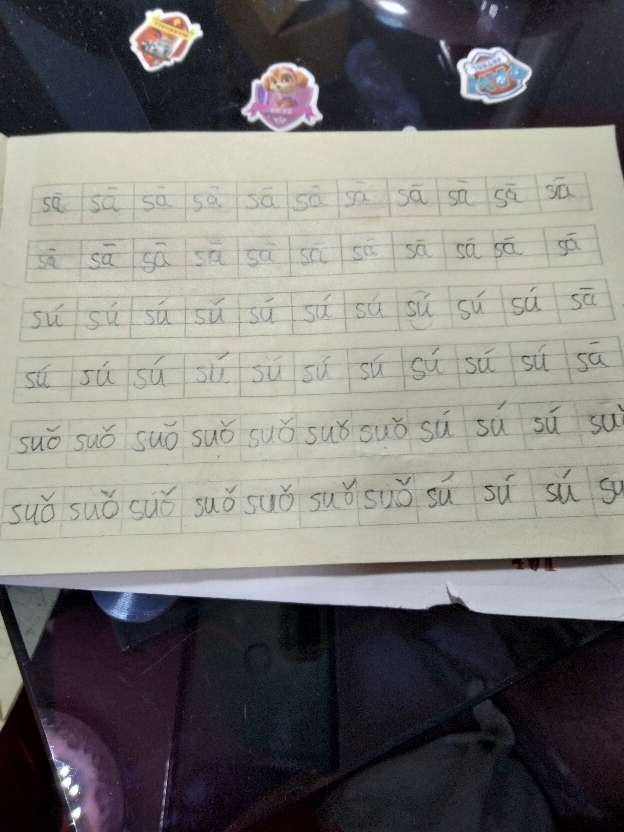 sā sā sā sā sā sā sā sā sā sā sā
sā sā sā sā sā sā sā sā sā sā sā
sú sú sú sú sú sú sú sú sú sú sā
sú sú sú sú sú sú sú sú sú sú sā
suǒ suǒ suǒ suǒ suǒ suǒ suǒ sú sú sú
suǒ suǒ suǒ suǒ suǒ suǒ suǒ sú sú sú